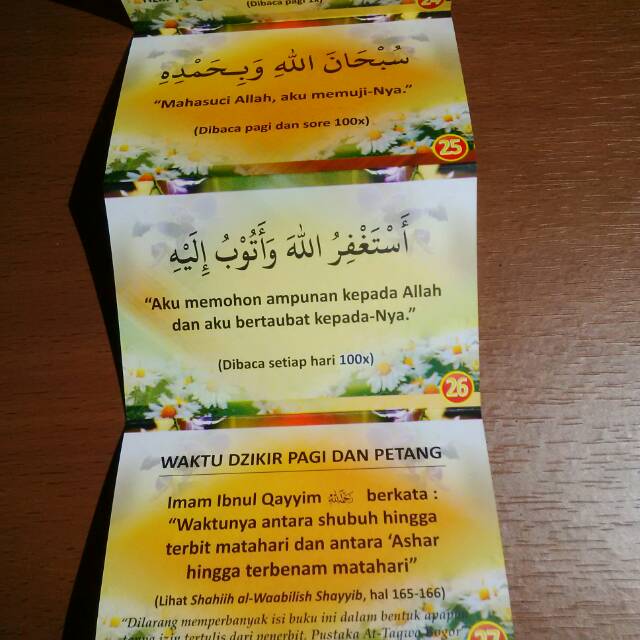 (Dibaca pagi 1x)
24
سُبْحَانَ اللهِ وَبِحَمْدِهِ
“Mahasuci Allah, aku memuji-Nya.”
(Dibaca pagi dan sore 100x)
25
أَسْتَغْفِرُ اللهَ وَأَتُوْبُ إِلَيْهِ
“Aku memohon ampunan kepada Allah
dan aku bertaubat kepada-Nya.”
(Dibaca setiap hari 100x)
26
WAKTU DZIKIR PAGI DAN PETANG
Imam Ibnul Qayyim berkata :
“Waktunya antara shubuh hingga
terbit matahari dan antara ‘Ashar
hingga terbenam matahari”
(Lihat Shahiih al-Waabilish Shayyib, hal 165-166)
“Dilarang memperbanyak isi buku ini dalam bentuk apapun
tanpa izin tertulis dari penerbit. Pustaka At-Taqwa Bogor
27